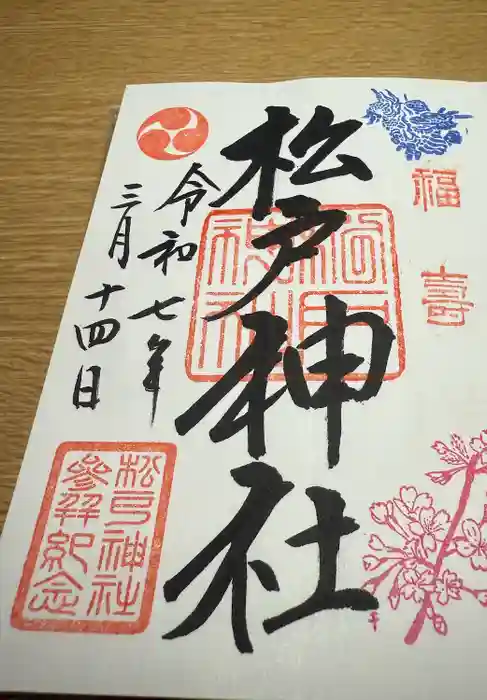 福
寿
松戸神社
令和七年
三月十四日
松戸神社
參拜紀念